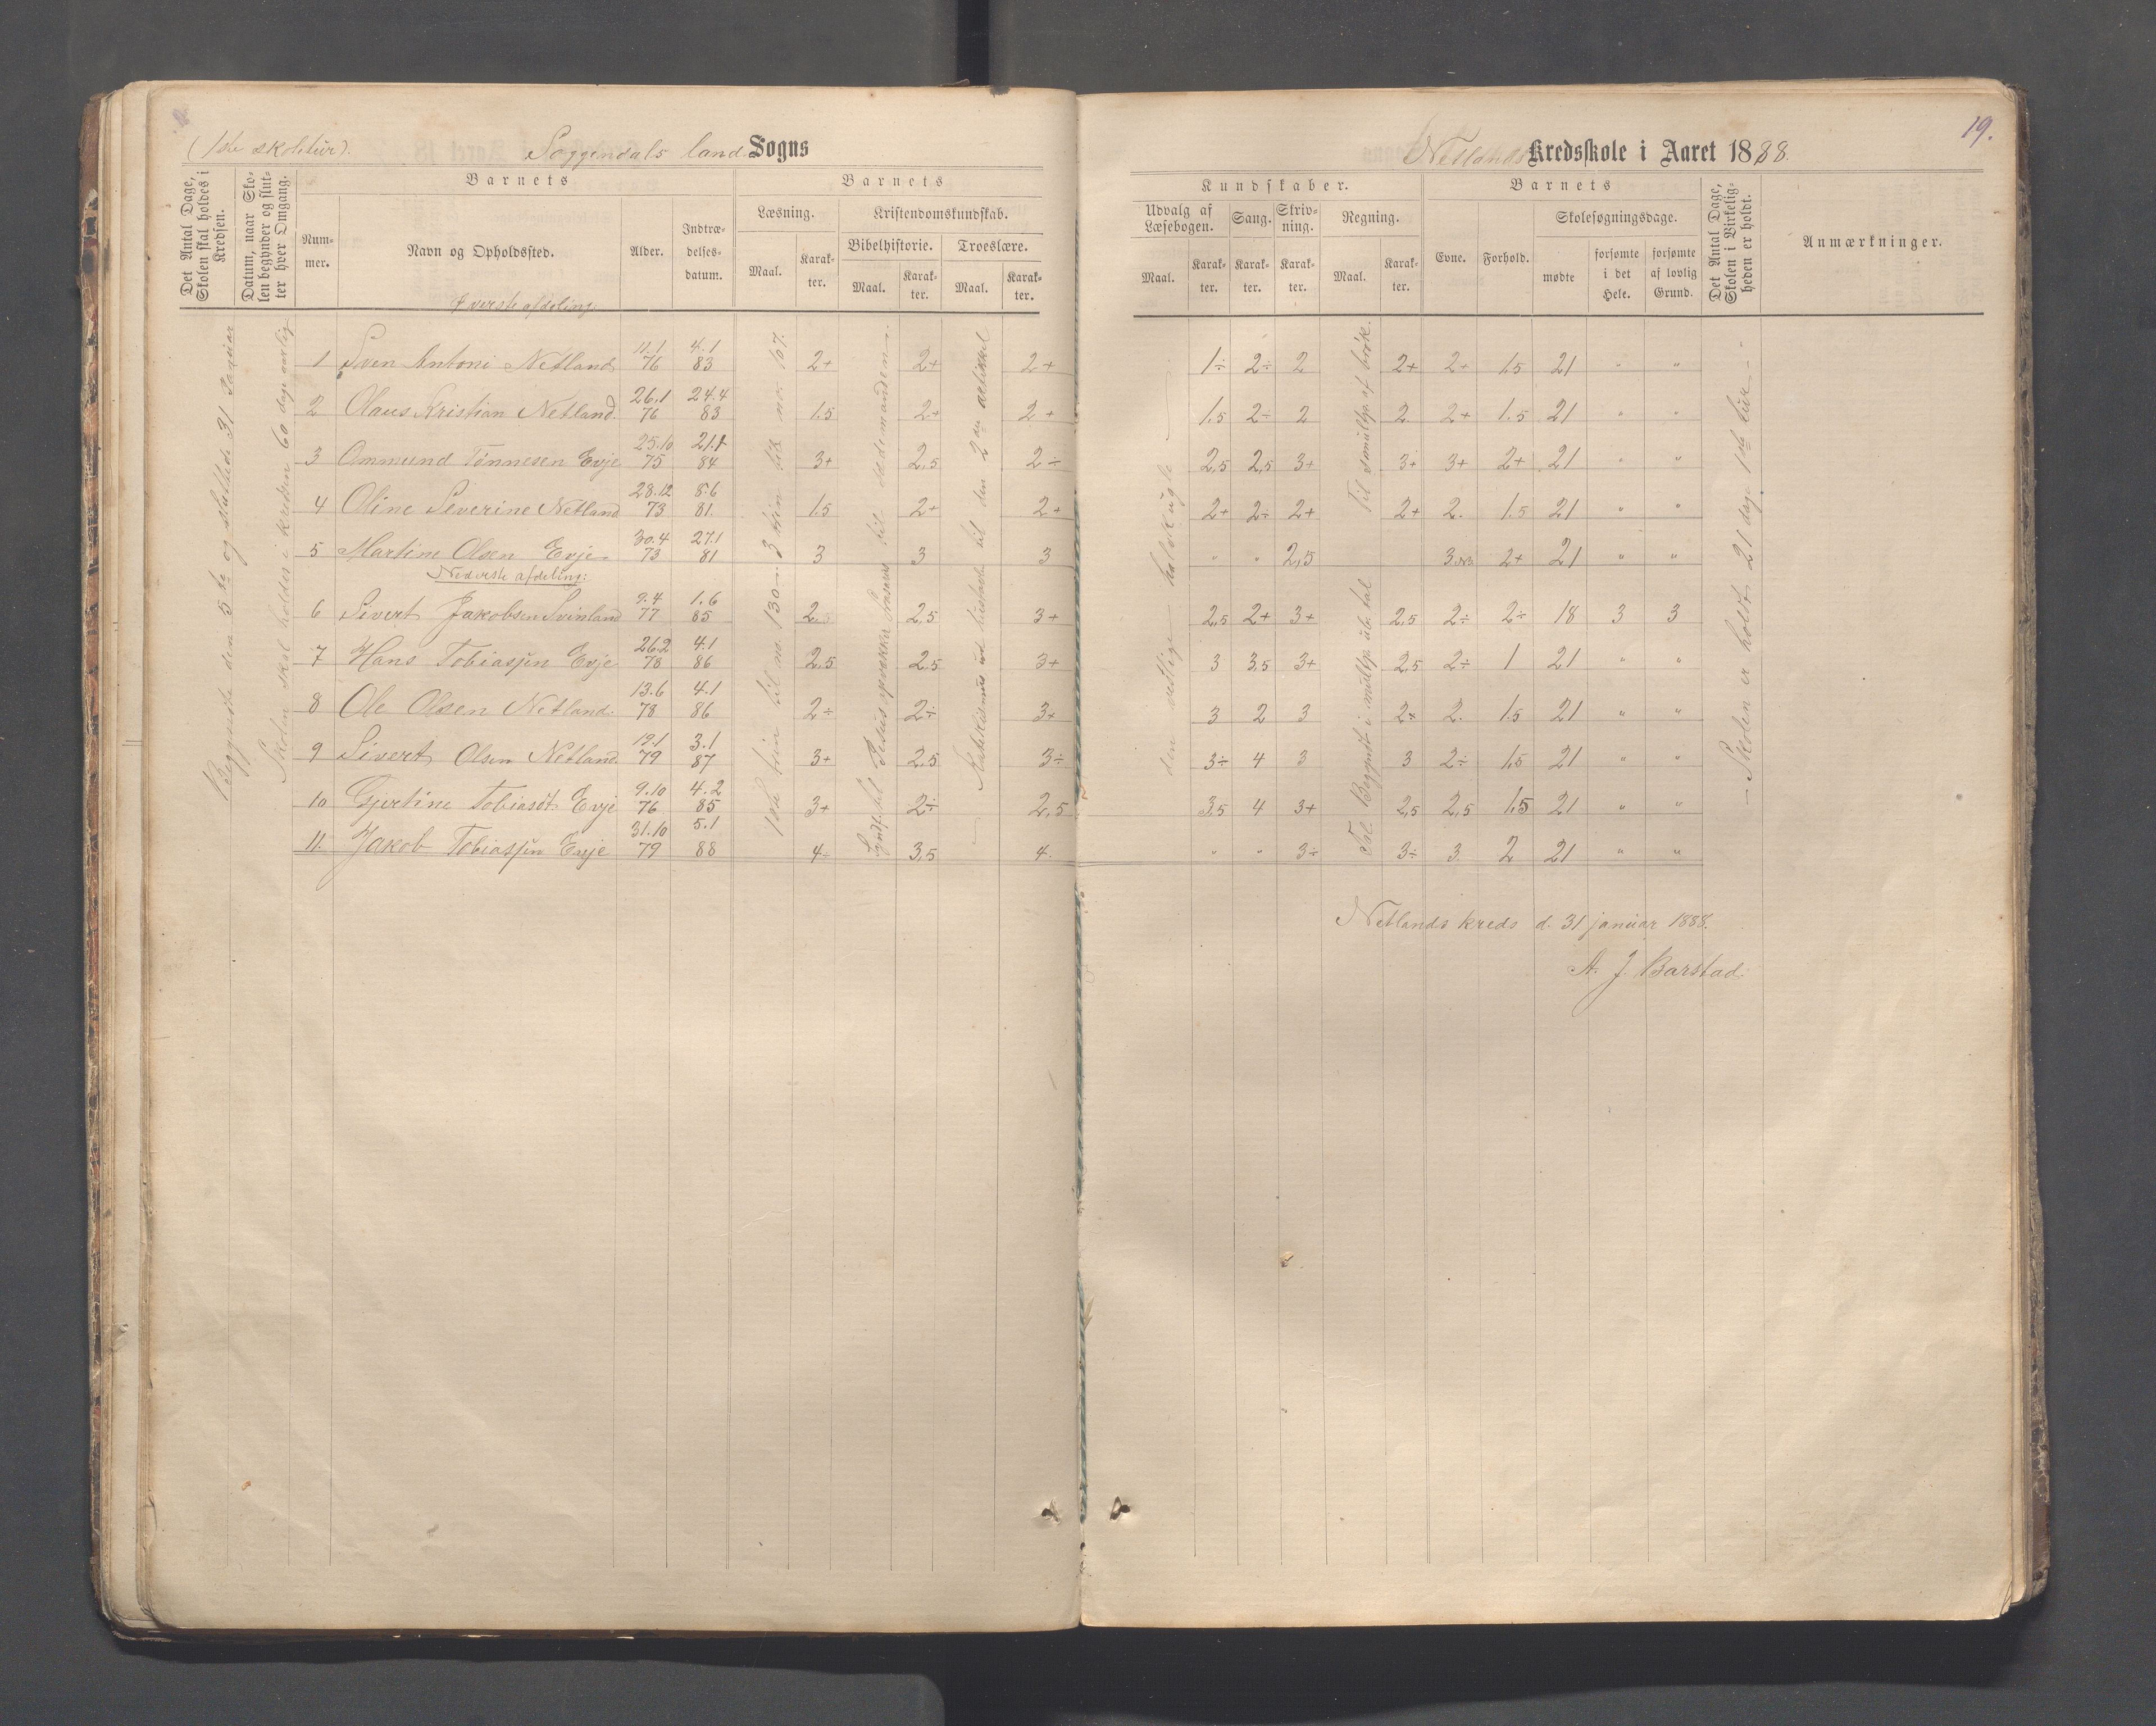 19.
(1ste skoletur). Soggendals land Sogns Netlands Kredsskole i Aaret 1888.
Det Antal Dage, Skolen skal holdes i Kredsen.
Datum, naar Skolen begynder og slutter hver Omgang.
Barnets
Nummer.
Navn og Opholdssted.
Alder.
Indtrædelsesdatum.
Barnets
Læsning.
Maal.
Karakter.
Kristendomskundskab.
Bibelhistorie.
Maal.
Karakter.
Troeslære.
Maal.
Karakter.
Kundskaber.
Udvalg af Læsebogen.
Maal.
Karakter.
Sang.
Karakter.
Skrivning.
Karakter.
Regning.
Maal.
Karakter.
Barnets
Evne.
Forhold.
Skolesøgningsdage.
mødte
forsømte i det Hele.
forsømte af lovlig Grund.
Det Antal Dage, Skolen i Virkeligheden er holdt.
Anmærkninger.
Øverste afdeling.
1 Sven Antoni Netland 11.1 76 4.1 83 2+ 2+ 2+ 1÷ 2÷ 2 2+ 2+ 1.5 21 " "
2 Olaus Kristian Netland 26.1 76 24.4 83 1.5 2+ 2+ 1.5 2÷ 2 2. 2+ 1.5 21 " "
3 Ommund Tønnesen Evje 25.10 75 21.1 84 3+ 2,5 2÷ 2,5 2,5 3+ 3+ 3+ 2+ 21 " "
4 Oline Severine Netland 28.12 73 8.6 81. 1.5 2+ 2+ 2+ 2÷ 2+ 2+ 2. 1.5 21 " "
5 Martine Olsen Evje 30.4 73 27.1 81 3 3 3 " " 2,5 3 2+ 21 " "
Nederste afdeling:
6 Sivert Jakobsen Svinland 9.4 77 1.6 85 2.5 2,5 3+ 2,5 2+ 3+ 2,5 2÷ 2÷ 18 3 3
7 Hans Tobiassen Evje 26.2 78 4.1 86 2,5 2,5 3+ 3 3,5 3+ 2,5 2÷ 1 21 " "
8 Ole Olsen Netland. 13.6 78 4.1 86 2÷ 2÷ 3+ 3 2 3 2+ 2. 1.5 21 " "
9 Sivert Olsen Netland 79 3.1 87 3+ 2.5 3÷ 3÷ 4 3 3 2÷ 1,5 21 " "
10 Gjertine Tobiasdt. Evje 9.10 76 4.2 85 3+ 2÷ 2,5 3,5 4 3+ 2,5 2,5 1,5 21 " "
11. Jakob Tobiassen Evje 31.10 79 5.1 88 4÷ 3,5 4. " " 3÷ 3÷ 3. 2 21 " "
Beggyndte den 5te og sluttede 31 Januar
Skolen skal holdes i kredsen 60 dage aarlig
til no 130
til no 167.
til den 2den artikkel
den vettige halskugle
Til smultip. af brøk.
Begyndt i multip. ub. tal
– Skolen er holdt 21 dage 1ste tur –
Netlands kreds d. 31 januar 1888.
A. J. Barstad.